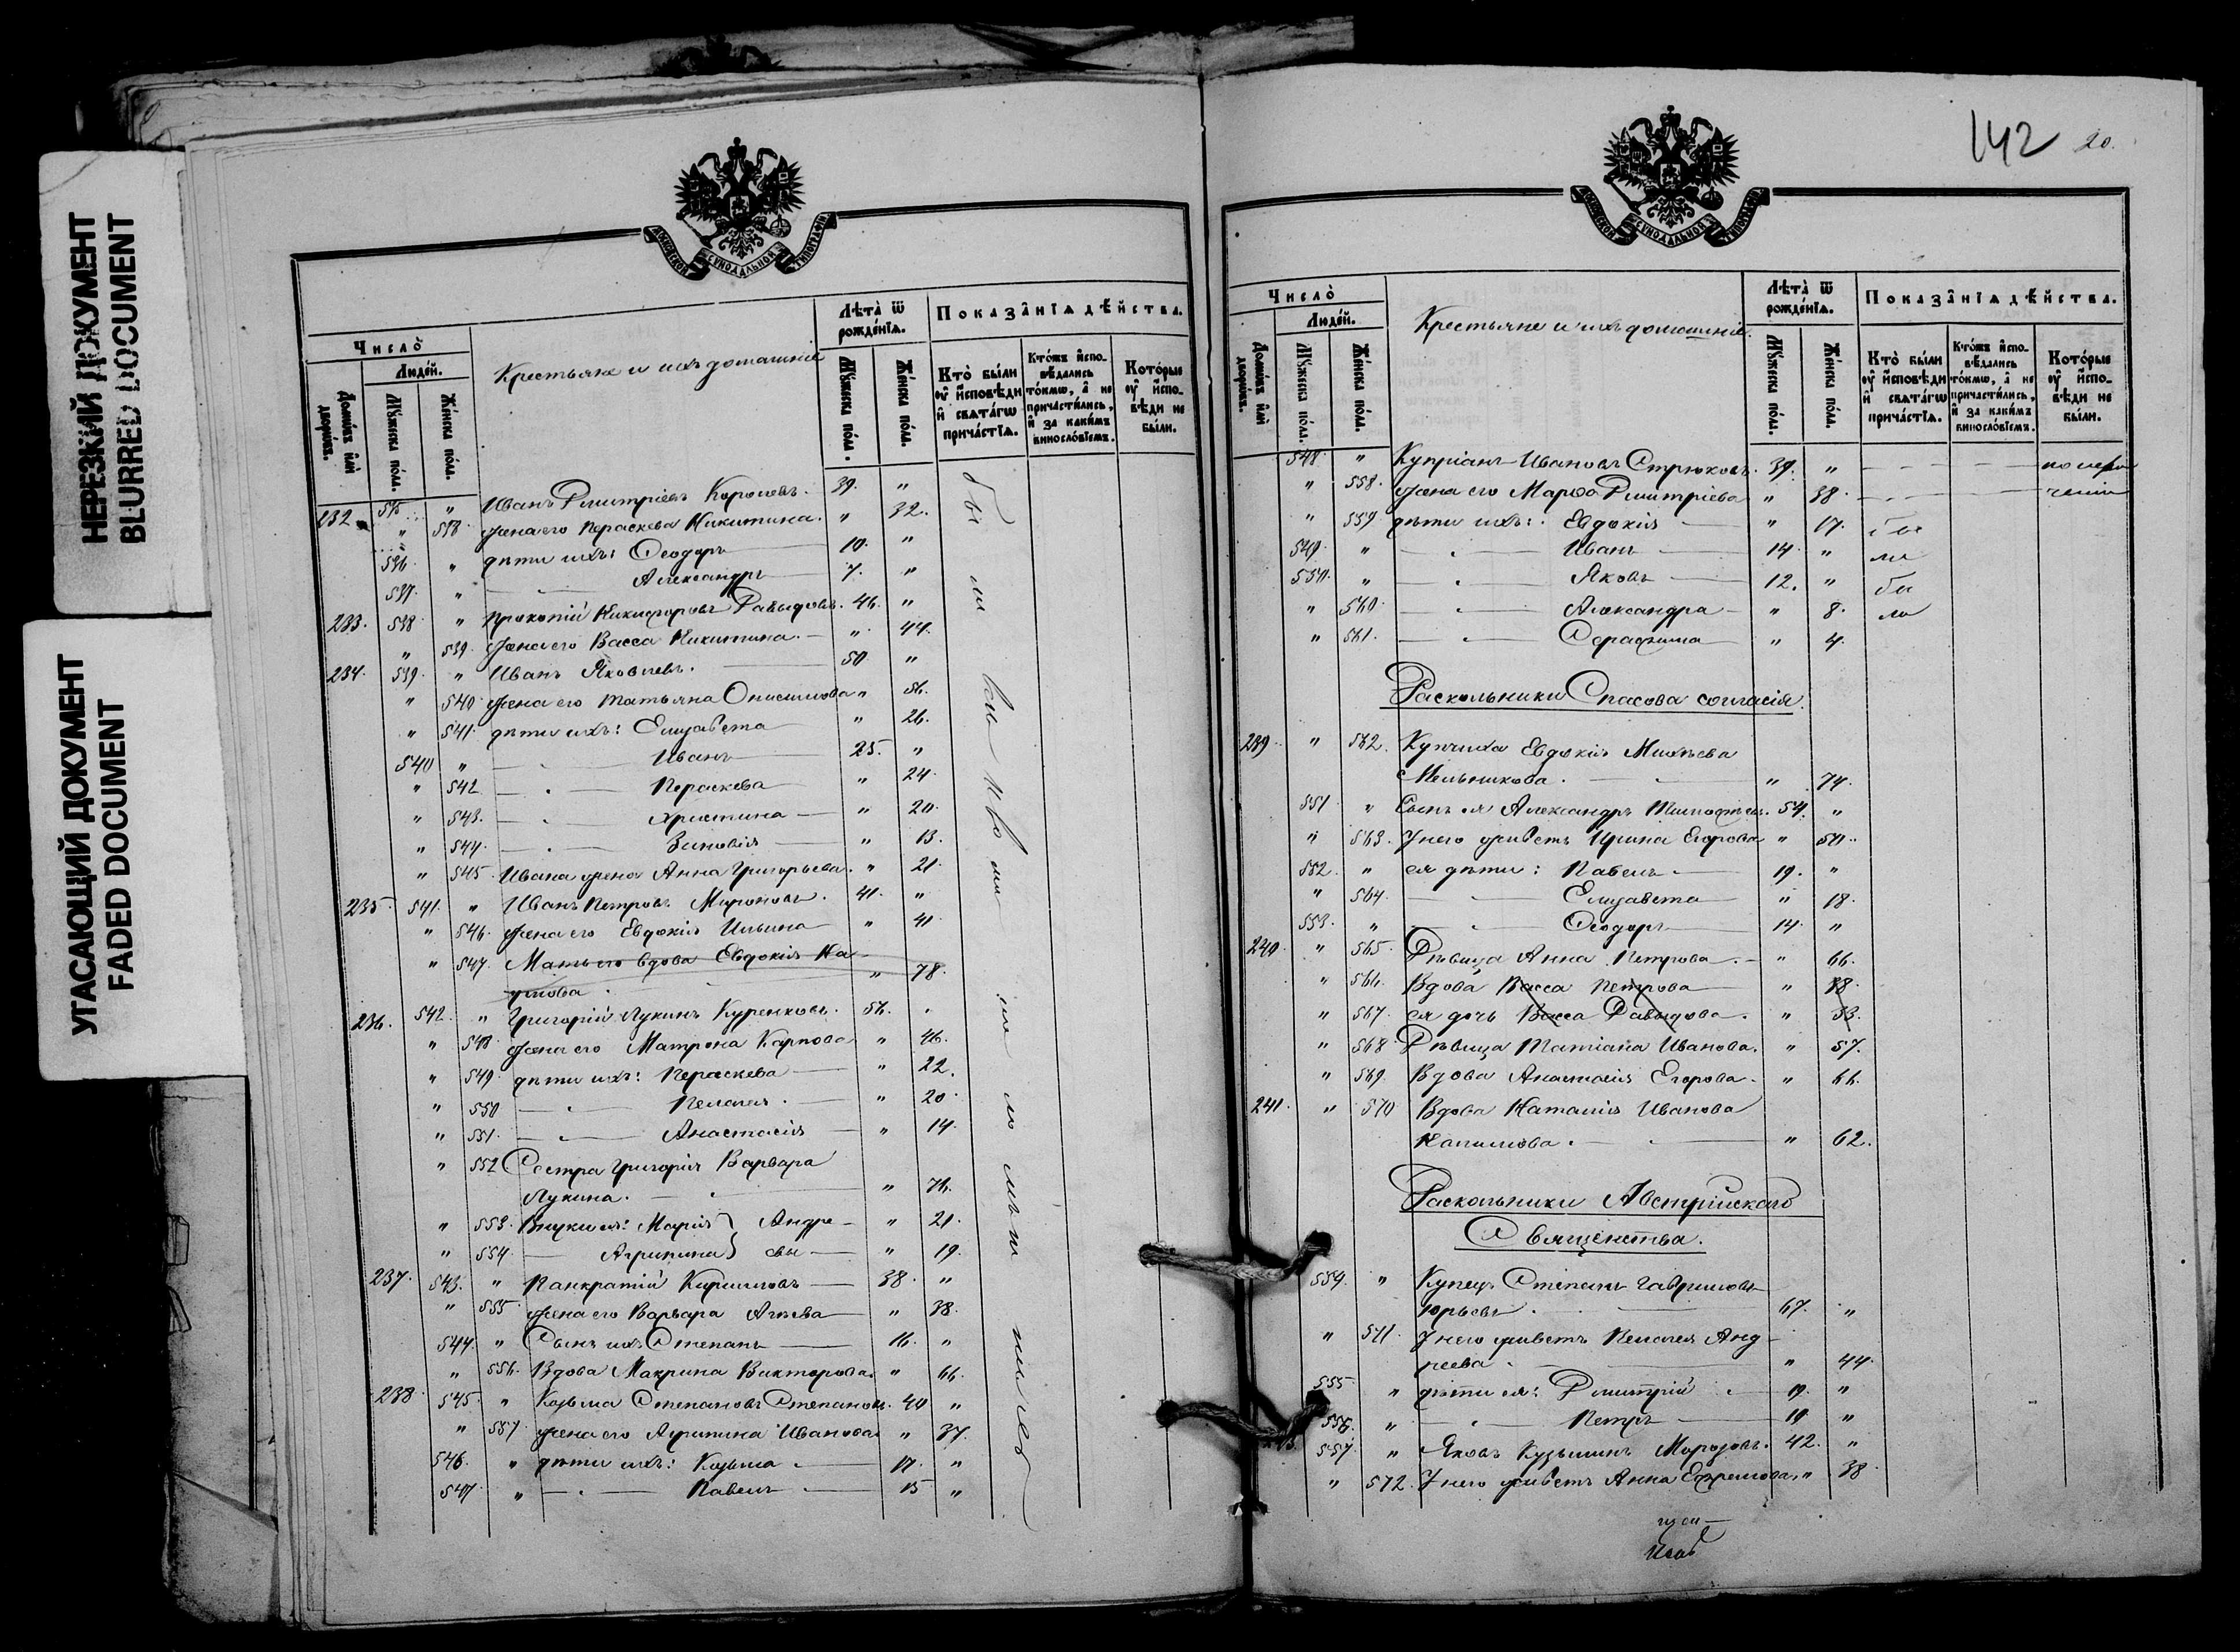 НЕРЕЗКИЙ ДОКУМЕНТ
BLURRED DOCUMENT
УГАСАЮЩИЙ ДОКУМЕНТ
FADED DOCUMENT
МОСКОВСКОЙ СѴНОДАЛЬНОЙ ТИПОГРАФІИ
Число̀
Люде́й.
Домѡ́въ и҆лѝ дворѡ́въ.
Мꙋ́жеска по́ла.
Же́нска по́ла.
Крестьяне и ихъ домашніе
Лѣта̀ ѿ рожде́нїѧ.
Мꙋ́жеска по́ла.
Же́нска по́ла.
Показа̑нїѧ дѣ́йства.
Кто̀ бы́ли ᲂу҆ и҆сповѣди и҆ свѧта́гѡ прича́стїѧ.
Кто́жъ и҆спо-вѣдались то́кмѡ, а҆ не причасти́лись, и҆ за каки́мъ винословїемъ.
Кото́рые ᲂу҆ и҆спо-вѣди не бы́ли.
232 535 " Иванъ Дмитріевъ Королевъ. 39. "
" 538 жена его Параскева Никитина. " 32.
536 " дѣти ихъ: Ѳеодоръ 10. "
537. " Александръ 7. "
233. 538 " Прокопій Никифоровъ Давыдовъ. 46. "
" 539. жена его Васса Никитина. " 44.
234. 539. " Иванъ Яковлевъ. 50 "
" 540 жена его Татьяна Онисимова " 56.
" 541. дѣти ихъ: Елизавета " 26.
540 " Иванъ 25. "
" 542 Параскева " 24.
" 543. Христина " 20.
" 544. Зиновія " 13.
" 545. Ивана жена Анна Григорьева. " 21.
235. 541. " Иванъ Петровъ Мироновъ. 41. "
" 546. жена его Евдокія Ильина " 41.
" 547. Мать его вдова Евдокія На-
умова. " 78.
236. 542. " Григорій Лукинъ Куренковъ. 56. "
" 548 жена его Матрона Карпова " 46.
" 549. дѣти ихъ: Параскева " 22.
" 550 Пелагея. " 20.
" 551. Анастасія " 14.
" 552 Сестра Григорія Варвара
Лукина. " 76.
" 553. Внуки ея: Марія } Андре- " 21.
" 554. Агрипина } евы " 19.
237. 543. " Панкратій Кирилловъ 38. "
" 555 жена его Варвара Агѣева " 38.
544. " Сынъ ихъ Степанъ 16. "
" 556. Вдова Макрина Викторова. " 66.
238. 545. " Козьма Степановъ Степановъ. 40 "
" 557 жена его Агрипина Иванова " 37.
546. " дѣти ихъ: Козьма 17. "
547. " Павелъ 15 "
бы ли
142 20.
МОСКОВСКОЙ СѴНОДАЛЬНОЙ ТИПОГРАФІИ
Число̀
Люде́й.
Домѡ́въ и҆лѝ дворѡ́въ.
Мꙋ́жеска по́ла.
Же́нска по́ла.
Крестьяне и ихъ домашніе.
Лѣта̀ ѿ рожде́нїѧ.
Мꙋ́жеска по́ла.
Же́нска по́ла.
Показа̑нїѧ дѣ́йства.
Кто̀ бы́ли ᲂу҆ и҆сповѣди и҆ свѧта́гѡ прича́стїѧ.
Кто́жъ и҆спо-вѣдались то́кмѡ, а҆ не причасти́лись, и҆ за каки́мъ винословїемъ.
Кото́рые ᲂу҆ и҆спо-вѣди не бы́ли.
548. " Купріанъ Ивановъ Стрюковъ. 39. "
" 558. жена его Марѳа Дмитріева " 38.
" 559 дѣти ихъ: Евдокія " 17. бы
549. " Иванъ 14. " ли
550. " Яковъ 12. " бы
" 560. Александра " 8. ли
" 561. Серафима " 4.
Раскольники Спасова согласія.
239. " 562. Купчиха Евдокія Михѣева
Мельникова. " 74.
551 " Сынъ ея Александръ Тимофѣевъ. 54. "
" 563. У него живетъ Ирина Егорова " 50.
552. " ея дѣти: Павелъ. 19. "
" 564. Елизавета " 18.
553. " Ѳеодоръ 14. "
240. " 565. Дѣвица Анна Петрова. " 66.
" 566. Вдова Васса Петрова " 88.
" 567. ея дочь Васса Давыдова. " 53.
" 568 Дѣвица Татіана Иванова. " 57.
" 569. Вдова Анастасія Егорова. " 66.
241. " 570 Вдова Наталія Иванова
" 62.
Раскольники Австрійскаго
Священства.
554. " Купецъ Степанъ Гавриловъ
Юрьевъ. 67. "
" 571. У него живетъ Пелагея Анд-
реева. " 44.
555 " дѣти ея: Дмитрій 19. "
556. " Петръ 19 "
557. " Яковъ Кузьминъ Морозовъ. 42. "
" 572. У него живетъ Анна Ефремова. " 38